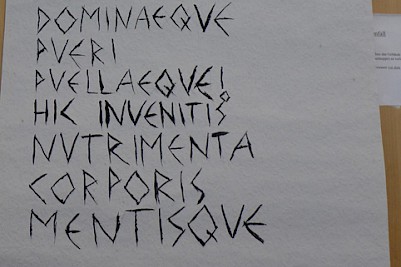 DOMINAEQVE
PVERI
PVELLAEQVE!
HIC INVENITIS
NVTRIMENTA
CORPORIS
MENTISQVE